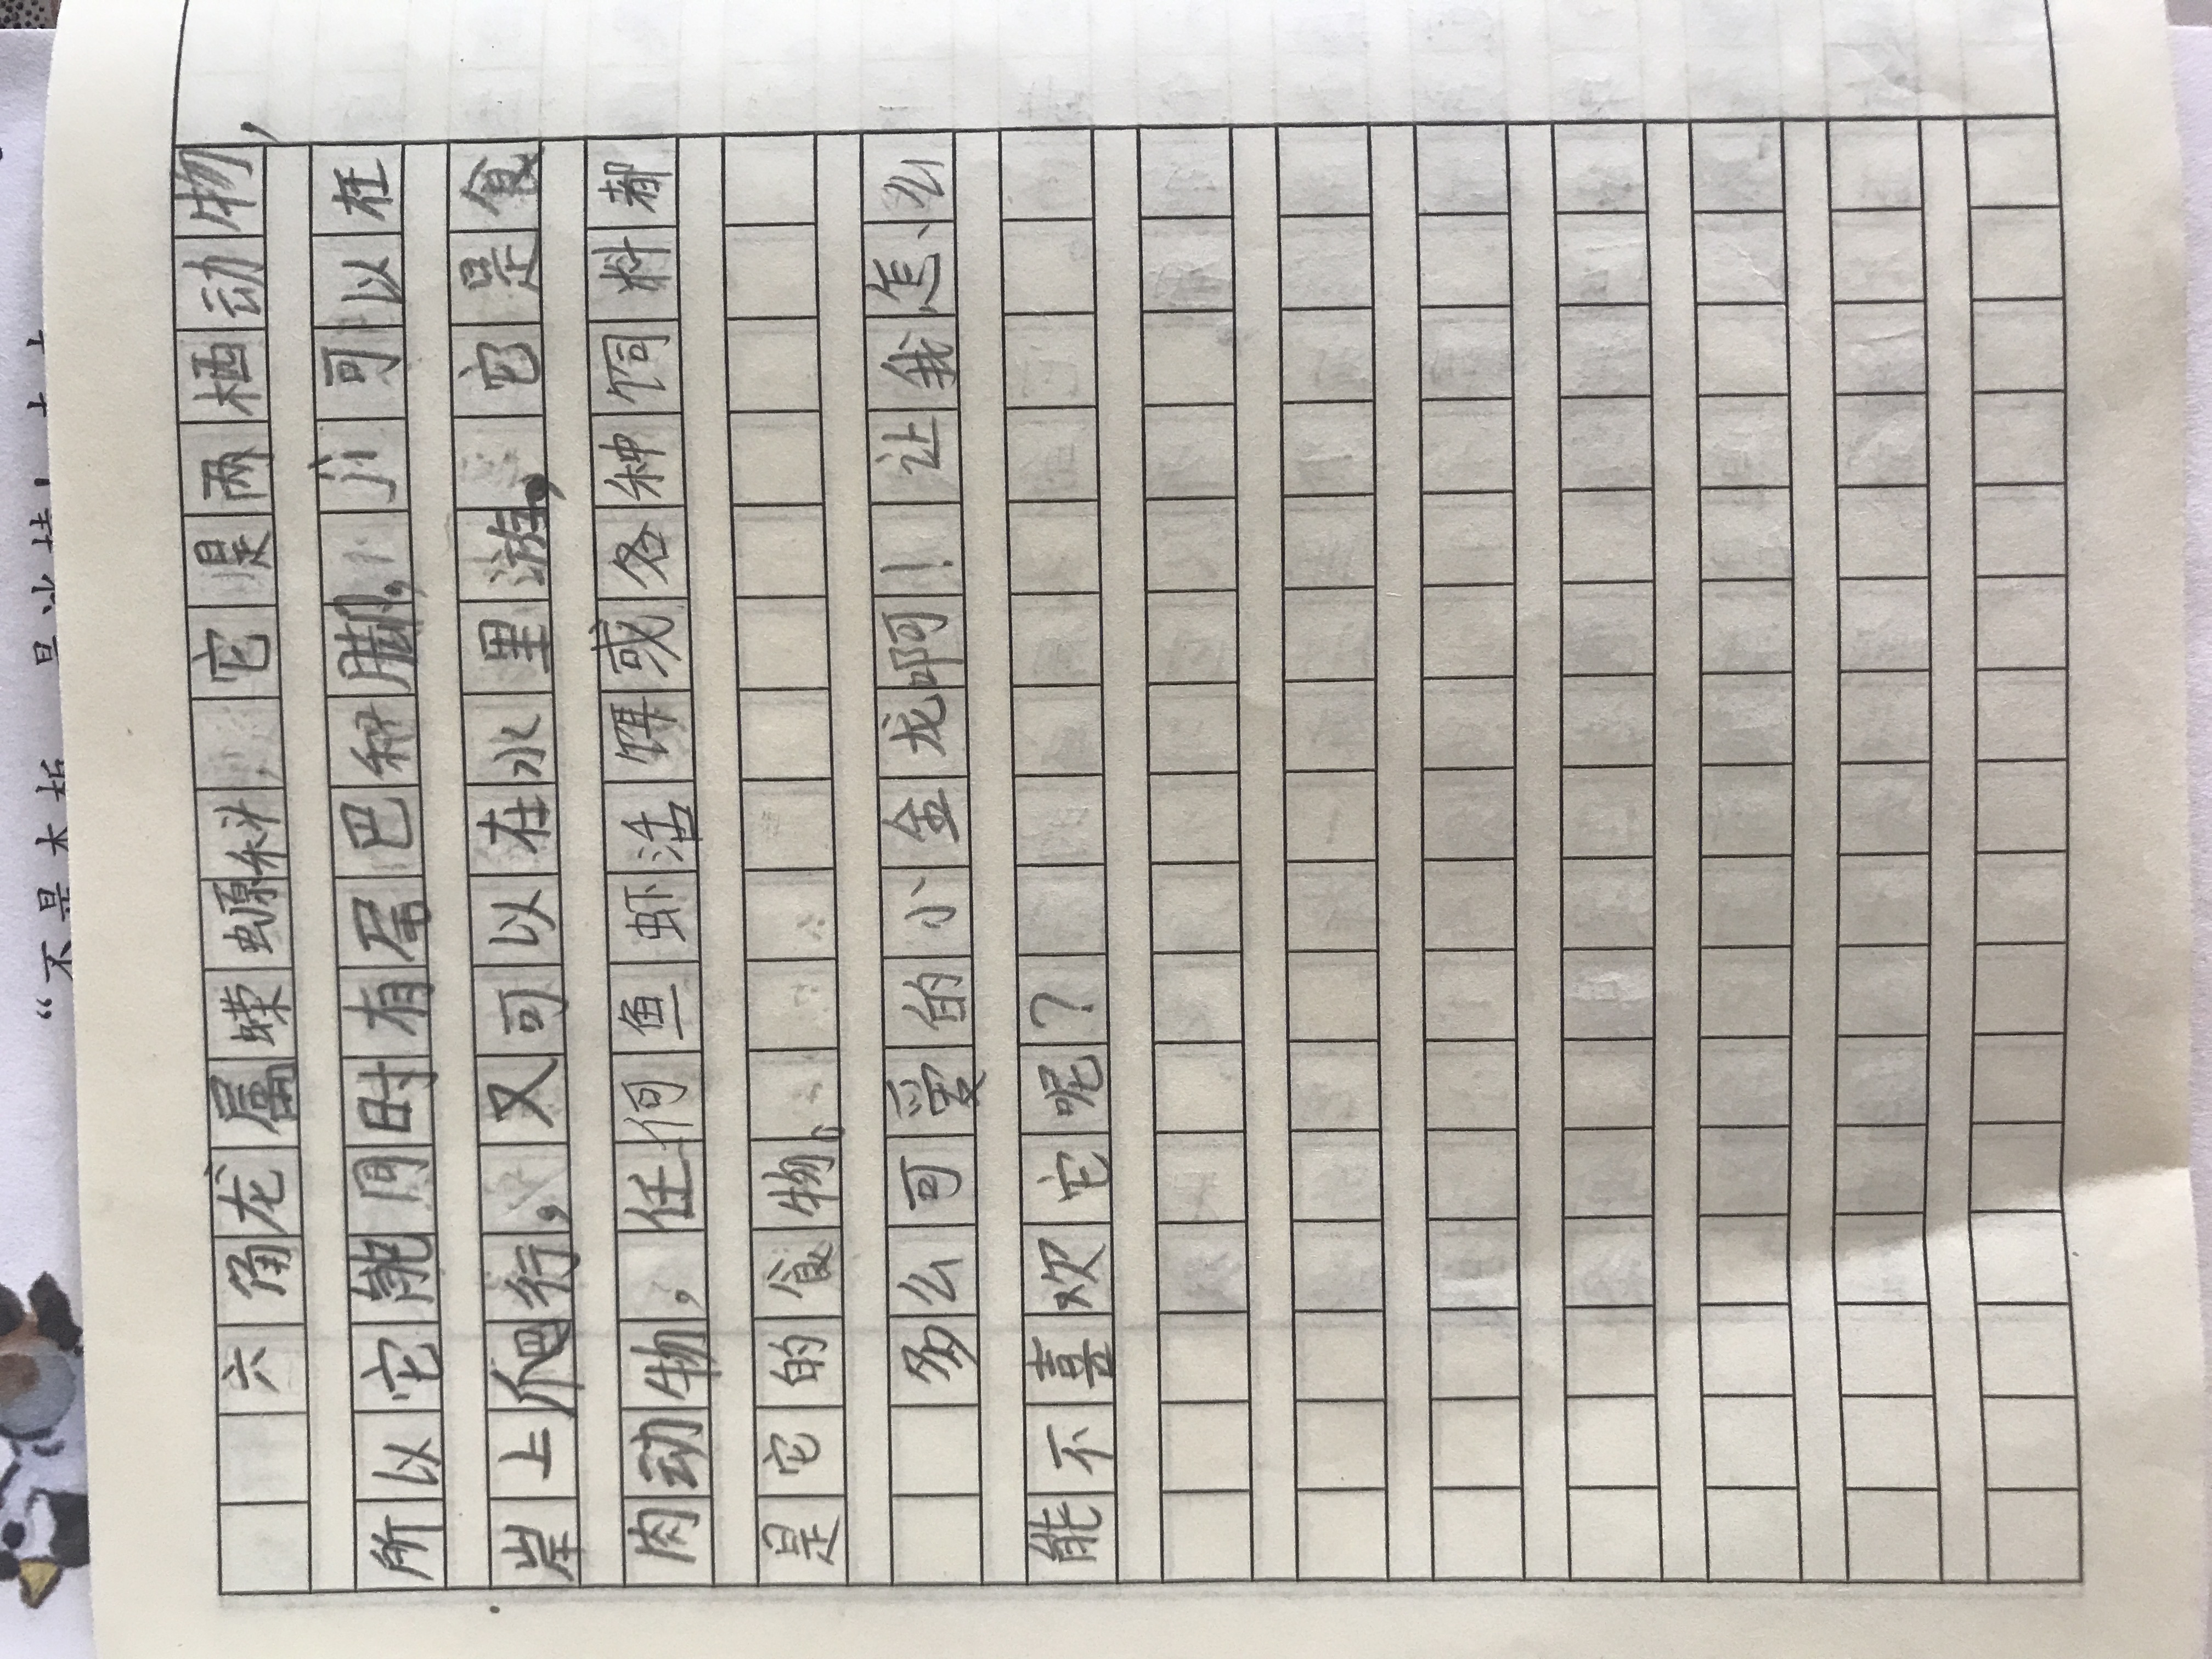 六角龙属蝾螈科，它是两栖动物，
所以它能同时有尾巴和脚。jì可以在
岸上爬行，又可以在水里游，它是食
肉动物，任何鱼虾活饵或各种饲料都
是它的食物。
多么可爱的小金龙啊！让我怎么
能不喜欢它呢？